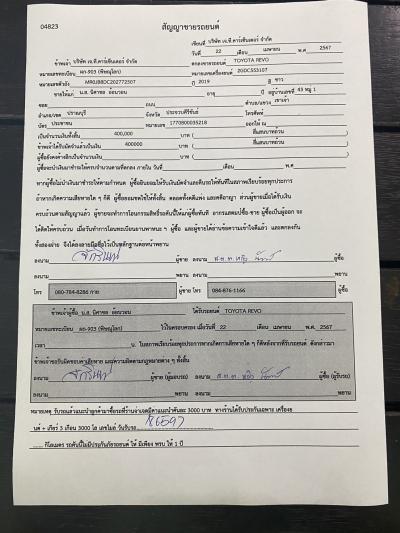 04823
สัญญาขายรถยนต์
เขียนที่ บริษัท เจ.ที.คาร์เซ็นเตอร์ จำกัด
วันที่ 22 เดือน เมษายน พ.ศ. 2567
ข้าพเจ้า บริษัท เจ.ที.คาร์เซ็นเตอร์ จำกัด ตกลงขายรถยนต์ TOYOTA REVO
หมายเลขทะเบียน ผก-903 (พิษณุโลก) หมายเลขเครื่องยนต์ 2GDC553107
หมายเลขตัวถัง MR0JB8DC202772507 ปี 2019 สี ขาว
ขายให้แก่ น.ส. นิศาชล อ้อนวอน อายุ ปี อยู่บ้านเลขที่ 43 หมู่ 1
ซอย ถนน ตำบล/แขวง เขาเจ้า
อำเภอ/เขต ปราณบุรี จังหวัด ประจวบคีรีขันธ์ โทรศัพท์
บัตร ประชาชน หมายเลข 1770800035218 ออกให้ ณ
เป็นจำนวนเงินทั้งสิ้น 400,000 บาท ( สี่แสนบาทถ้วน )
ผู้ซื้อได้วางมัดจำแล้วเป็นเงิน 400000 บาท ( สี่แสนบาทถ้วน )
ผู้ซื้อยังคงค้างอีกเป็นจำนวนเงิน บาท ( )
ผู้ซื้อจะนำเงินมาชำระให้ครบจำนวนตามที่ตกลง ภายใน วันที่ เดือน พ.ศ.
หากผู้ซื้อไม่นำเงินมาชำระให้ตามกำหนด ผู้ซื้อยินยอมให้ริบเงินมัดจำและคืนรถให้ทันทีในสภาพเรียบร้อยทุกประการ
ถ้าหากเกิดความเสียหายใด ๆ ก็ดี ผู้ซื้อยอมชดใช้ให้ทั้งสิ้น ตลอดทั้งคดีแพ่ง และคดีอาญา ส่วนผู้ขายเมื่อได้รับเงิน
ครบถ้วนตามสัญญาแล้ว ผู้ขายจะทำการโอนกรรมสิทธิ์รถคันนี้ให้แก่ผู้ซื้อทันที
ทั้งสองฝ่าย จึงได้ลงลายมือชื่อไว้เป็นหลักฐานต่อหน้าพยาน
ลงนาม ผู้ขาย ลงนาม ผู้ซื้อ
ลงนาม พยาน ลงนาม พยาน
โทร 080-784-8286 กาย ผู้ขาย โทร 084-876-1166 ผู้ซื้อ
ข้าพเจ้าผู้ซื้อ น.ส. นิศาชล อ้อนวอน ได้รับรถยนต์ TOYOTA REVO
หมายเลขทะเบียน ผก-903 (พิษณุโลก) ไว้ในครอบครอง เมื่อวันที่ 22 เดือน เมษายน พ.ศ. 2567
เวลา น. ในสภาพเรียบร้อยทุกประการหากเกิดการเสียหายใด ๆ
ข้าพเจ้าขอรับผิดชอบค่าเสียหาย และความผิดตามกฎหมายต่าง ๆ ทั้งสิ้น
ลงนาม ผู้ขาย (ผู้มอบรถ) ลงนาม ผู้ซื้อ (ผู้รับรถ)
ลงนาม พยาน ลงนาม พยาน
หมายเหตุ รับรถแล้วแนะนำลูกค้ามาซื้อรถที่ร้านจ่ายค่าแนะนำคันละ 3000 บาท ทางร้านได้รับประกันเฉพาะ เครื่องย
นต์ + เกียร์ 3 เดือน 3000 โล เลขไมล์ วันรับรถ
กิโลเมตร รถคันนี้ไม่มีประกันภัยรถยนต์ ให้ มีเพียง พรบ ให้ 1 ปี